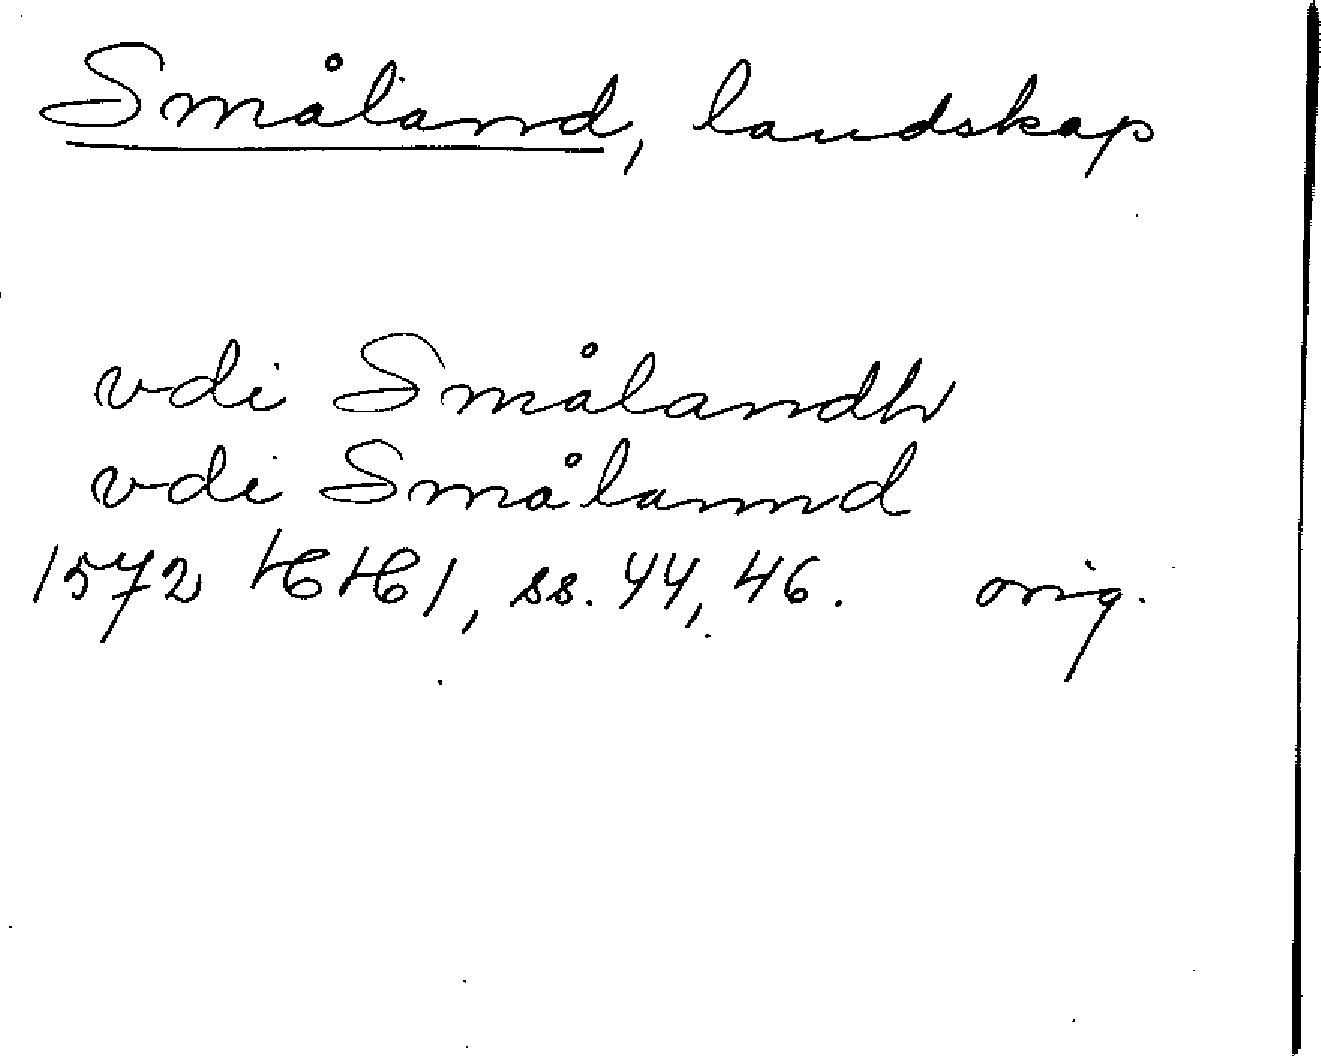 Småland, landskap
vdi Smålandh
vdi Smålannd
1572 HH 1, ss. 44, 46. orig.